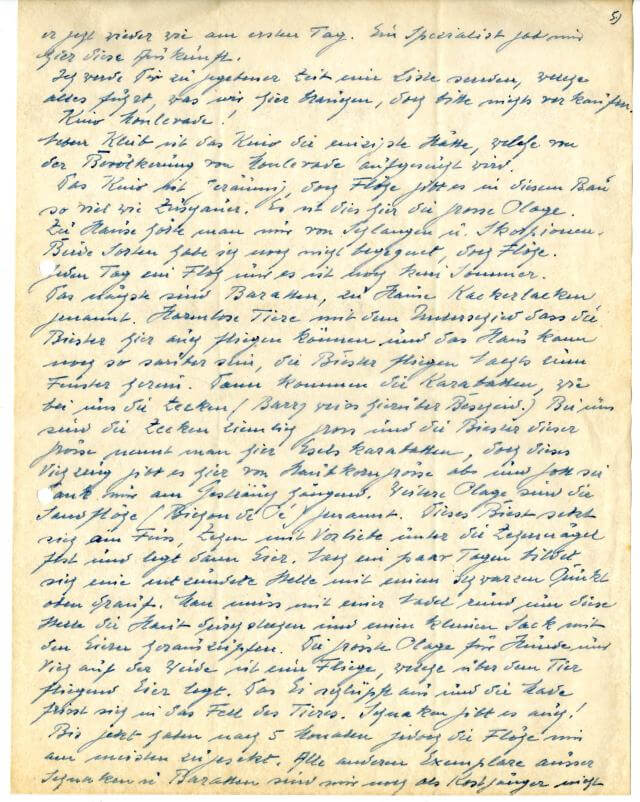 5)
er jetzt wieder wie am ersten Tag. Ein Spezialist gab mir
hier diese Auskunft.
Ich werde Dir zu gegebener Zeit eine Liste senden, welche
alles führt, was wir hier brauchen, doch bitte nichts vorkaufen.
Kino Monlevade!
Neben Klub ist das Kino die einzigste Stätte, welche von
der Bevölkerung von Monlevade aufgesucht wird.
Das Kino ist geräumig, doch Flöhe gibt es in diesem Bau
so viel wie Zuschauer. Es ist dies hier die grosse Plage.
Zu Hause hörte man nur von Schlangen u. Skorpionen.
Beide Sorten habe ich noch nicht begegnet, doch Flöhe.
jeden Tag ein Floh und es ist noch kein Sommer.
Das nächste sind Baratten, zu Hause Kackerlacken
genannt. Harmlose Tiere mit dem Unterschied dass die
Biester hier auch fliegen können und das Haus kann
noch so sauber sein, die Biester fliegen nachts zum
Fenster herein. Dann kommen die Karabatten, wie
bei uns die Zecken (Barry weiss hierüber Bescheid.) Bei uns
sind die Zecken ziemlich gross und die Biester dieser
Grösse nennt man hier Eselskarabatten, doch dieses
Viehzeug gibt es hier von Staubkorngrösse ab und Gott sei
Dank nur am Gesträuch hängend. Weitere Plage sind die
Sandflöhe (Biegon de Pé) genannt. Dieses Biest setzt
sich am Fuss, Zehen mit Vorliebe unter die Zehennägel
fest und legt dann Eier. Nach ein paar Tagen bildet
sich eine entzündete Stelle mit einem schwarzen Punkt
oben drauf. Man muss mit einer Nadel rund um diese
Stelle die Haut durchstechen und einen kleinen Sack mit
den Eiern herauszupfen. Die grösste Plage für Hunde und
Vieh auf der Weide ist eine Fliege, welche über dem Tier
fliegend Eier legt. Das Ei schlüpft aus und die Made
frisst sich in das Fell des Tieres. Schnaken gibt es auch!
Bis jetzt haben nach 5 Monaten jedoch die Flöhe mir
am meisten zugesetzt. Alle anderen Exemplare ausser
Schnaken u Baratten sind mir noch als Kostgänger nicht